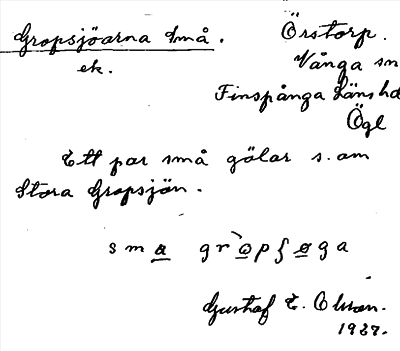 Gropsjöarna Små. Örstorp.
ek. Vånga sn
Finspånga Läns hd
Ögl
Ett par små gölar s.om
Stora Gropsjön.
sma gròpʃøga
Gustaf E. Olsson.
1937.